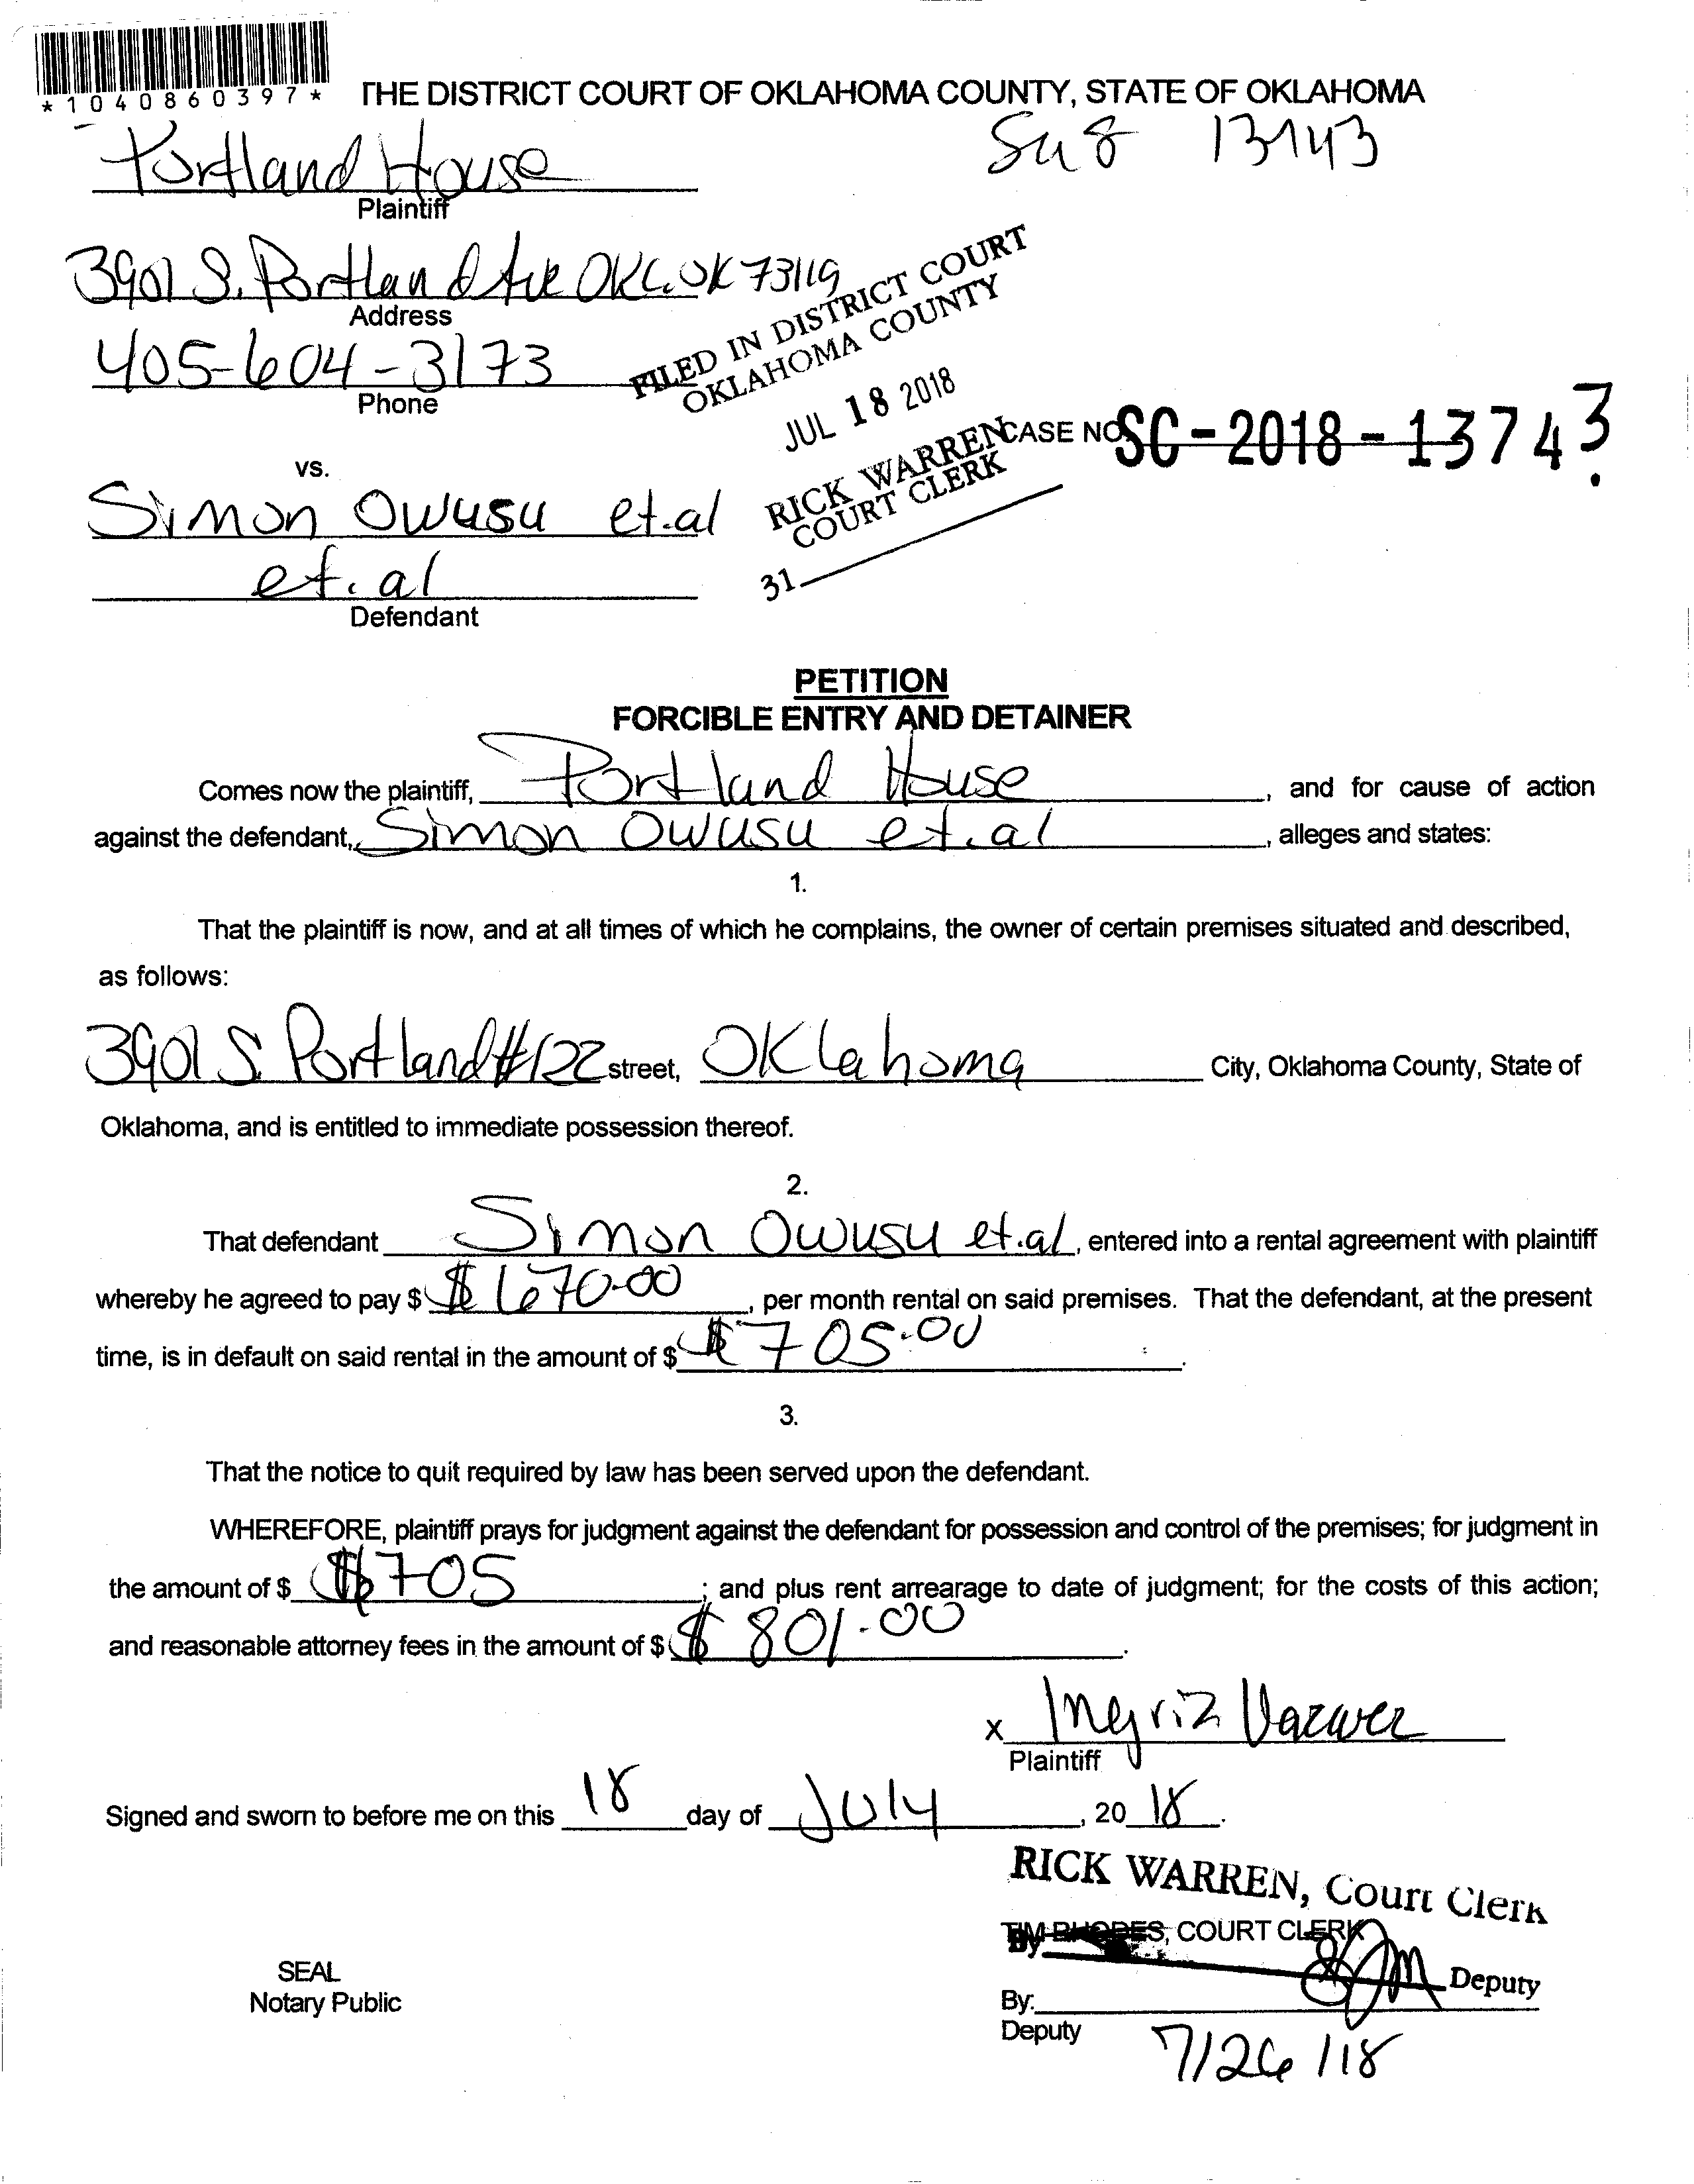 *1040860397*
THE DISTRICT COURT OF OKLAHOMA COUNTY, STATE OF OKLAHOMA
Portland House
Plaintiff
3901 S. Portland Ave OKC. OK 73119
Address
405-604-3173
Phone
FILED IN DISTRICT COURT
OKLAHOMA COUNTY
JUL 18 2018
RICK WARREN
COURT CLERK
31
CASE NO. SC-2018-13743
vs.
Simon Owusu et.al
et.al
Defendant
PETITION
FORCIBLE ENTRY AND DETAINER
Comes now the plaintiff, Portland House, and for cause of action
against the defendant, Simon Owusu et.al, alleges and states:
1.
That the plaintiff is now, and at all times of which he complains, the owner of certain premises situated and described,
as follows:
3901 S. Portland #122 street, Oklahoma City, Oklahoma County, State of
Oklahoma, and is entitled to immediate possession thereof.
2.
That defendant Simon Owusu et.al, entered into a rental agreement with plaintiff
whereby he agreed to pay $ $670.00, per month rental on said premises. That the defendant, at the present
time, is in default on said rental in the amount of $ $705.00.
3.
That the notice to quit required by law has been served upon the defendant.
WHEREFORE, plaintiff prays for judgment against the defendant for possession and control of the premises; for judgment in
the amount of $ $705; and plus rent arrearage to date of judgment; for the costs of this action;
and reasonable attorney fees in the amount of $ $801.00.
x
Plaintiff
Signed and sworn to before me on this 18 day of July, 2018.
RICK WARREN, Court Clerk
TIM RHODES, COURT CLERK
By Deputy
SEAL
Notary Public
By:
Deputy
7/26/18